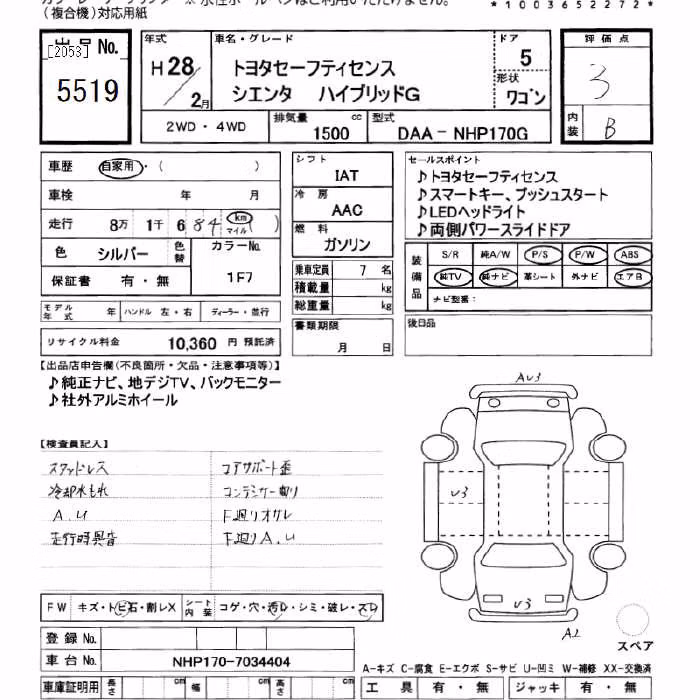 (複合機)対応用紙
*1003652272*
出品No.
[2053]
5519
年式
H28
2月
車名・グレード
トヨタセーフティセンス
シエンタ ハイブリッドG
ドア
5
形状
ワゴン
評価点
3
内装
B
2WD・4WD
排気量
1500
cc
型式
DAA-NHP170G
車歴
自家用・( )
車検 年 月
走行 8万 1千 684 (km マイル)
色 シルバー
色替
カラーNo.
1F7
保証書 有・無
モデル年式 年
ハンドル 左・右
ディーラー・並行
リサイクル料金 10,360 円 預託済
シフト
IAT
冷房
AAC
燃料
ガソリン
乗車定員 7 名
積載量 kg
総重量 kg
書類期限
月 日
セールスポイント
♪トヨタセーフティセンス
♪スマートキー、プッシュスタート
♪LEDヘッドライト
♪両側パワースライドドア
装備品
S/R 純A/W P/S P/W ABS
純TV 純ナビ 革シート 外ナビ エアB
ナビ型番:
後日品
【出品店申告欄(不良箇所・欠品・注意事項等)】
♪純正ナビ、地デジTV、バックモニター
♪社外アルミホイール
【検査員記入】
スタッドレス
冷却水もれ
A.U
走行時異音
コアサポート歪
コンデンサー曲り
下廻りオサレ
下廻りA.U
AU3
U3
U3
A2
スペア
FW キズ・トビ石・割レX
シート内装 コゲ・穴・汚レ・シミ・破レ・スレ
登録No.
車台No. NHP170-7034404
車庫証明用 長さ cm 幅 cm 高さ cm
A-キズ C-腐食 E-エクボ S-サビ U-凹ミ W-補修 XX-交換済
工具 有・無 ジャッキ 有・無